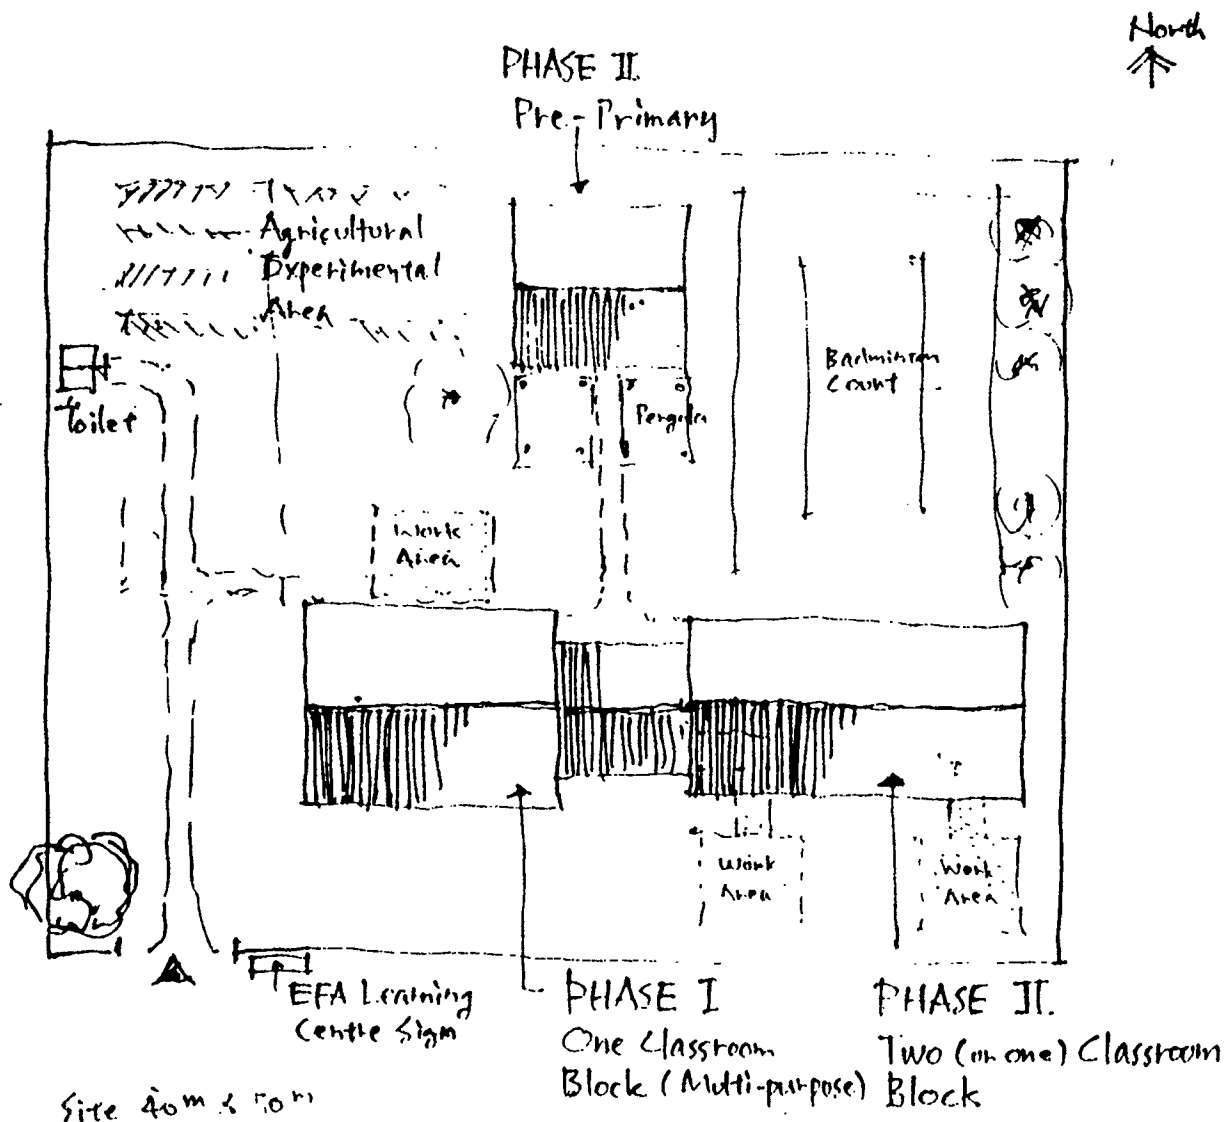 North
PHASE II.
Pre-Primary
Agricultural
Experimental
Area
Badminton
Court
Toilet
Pergola
Work
Area
Work
Area
Work
Area
EFA Learning
Centre Sign
PHASE I
One Classroom
Block (Multi-purpose)
PHASE II.
Two (or one) Classroom
Block
Site 40m